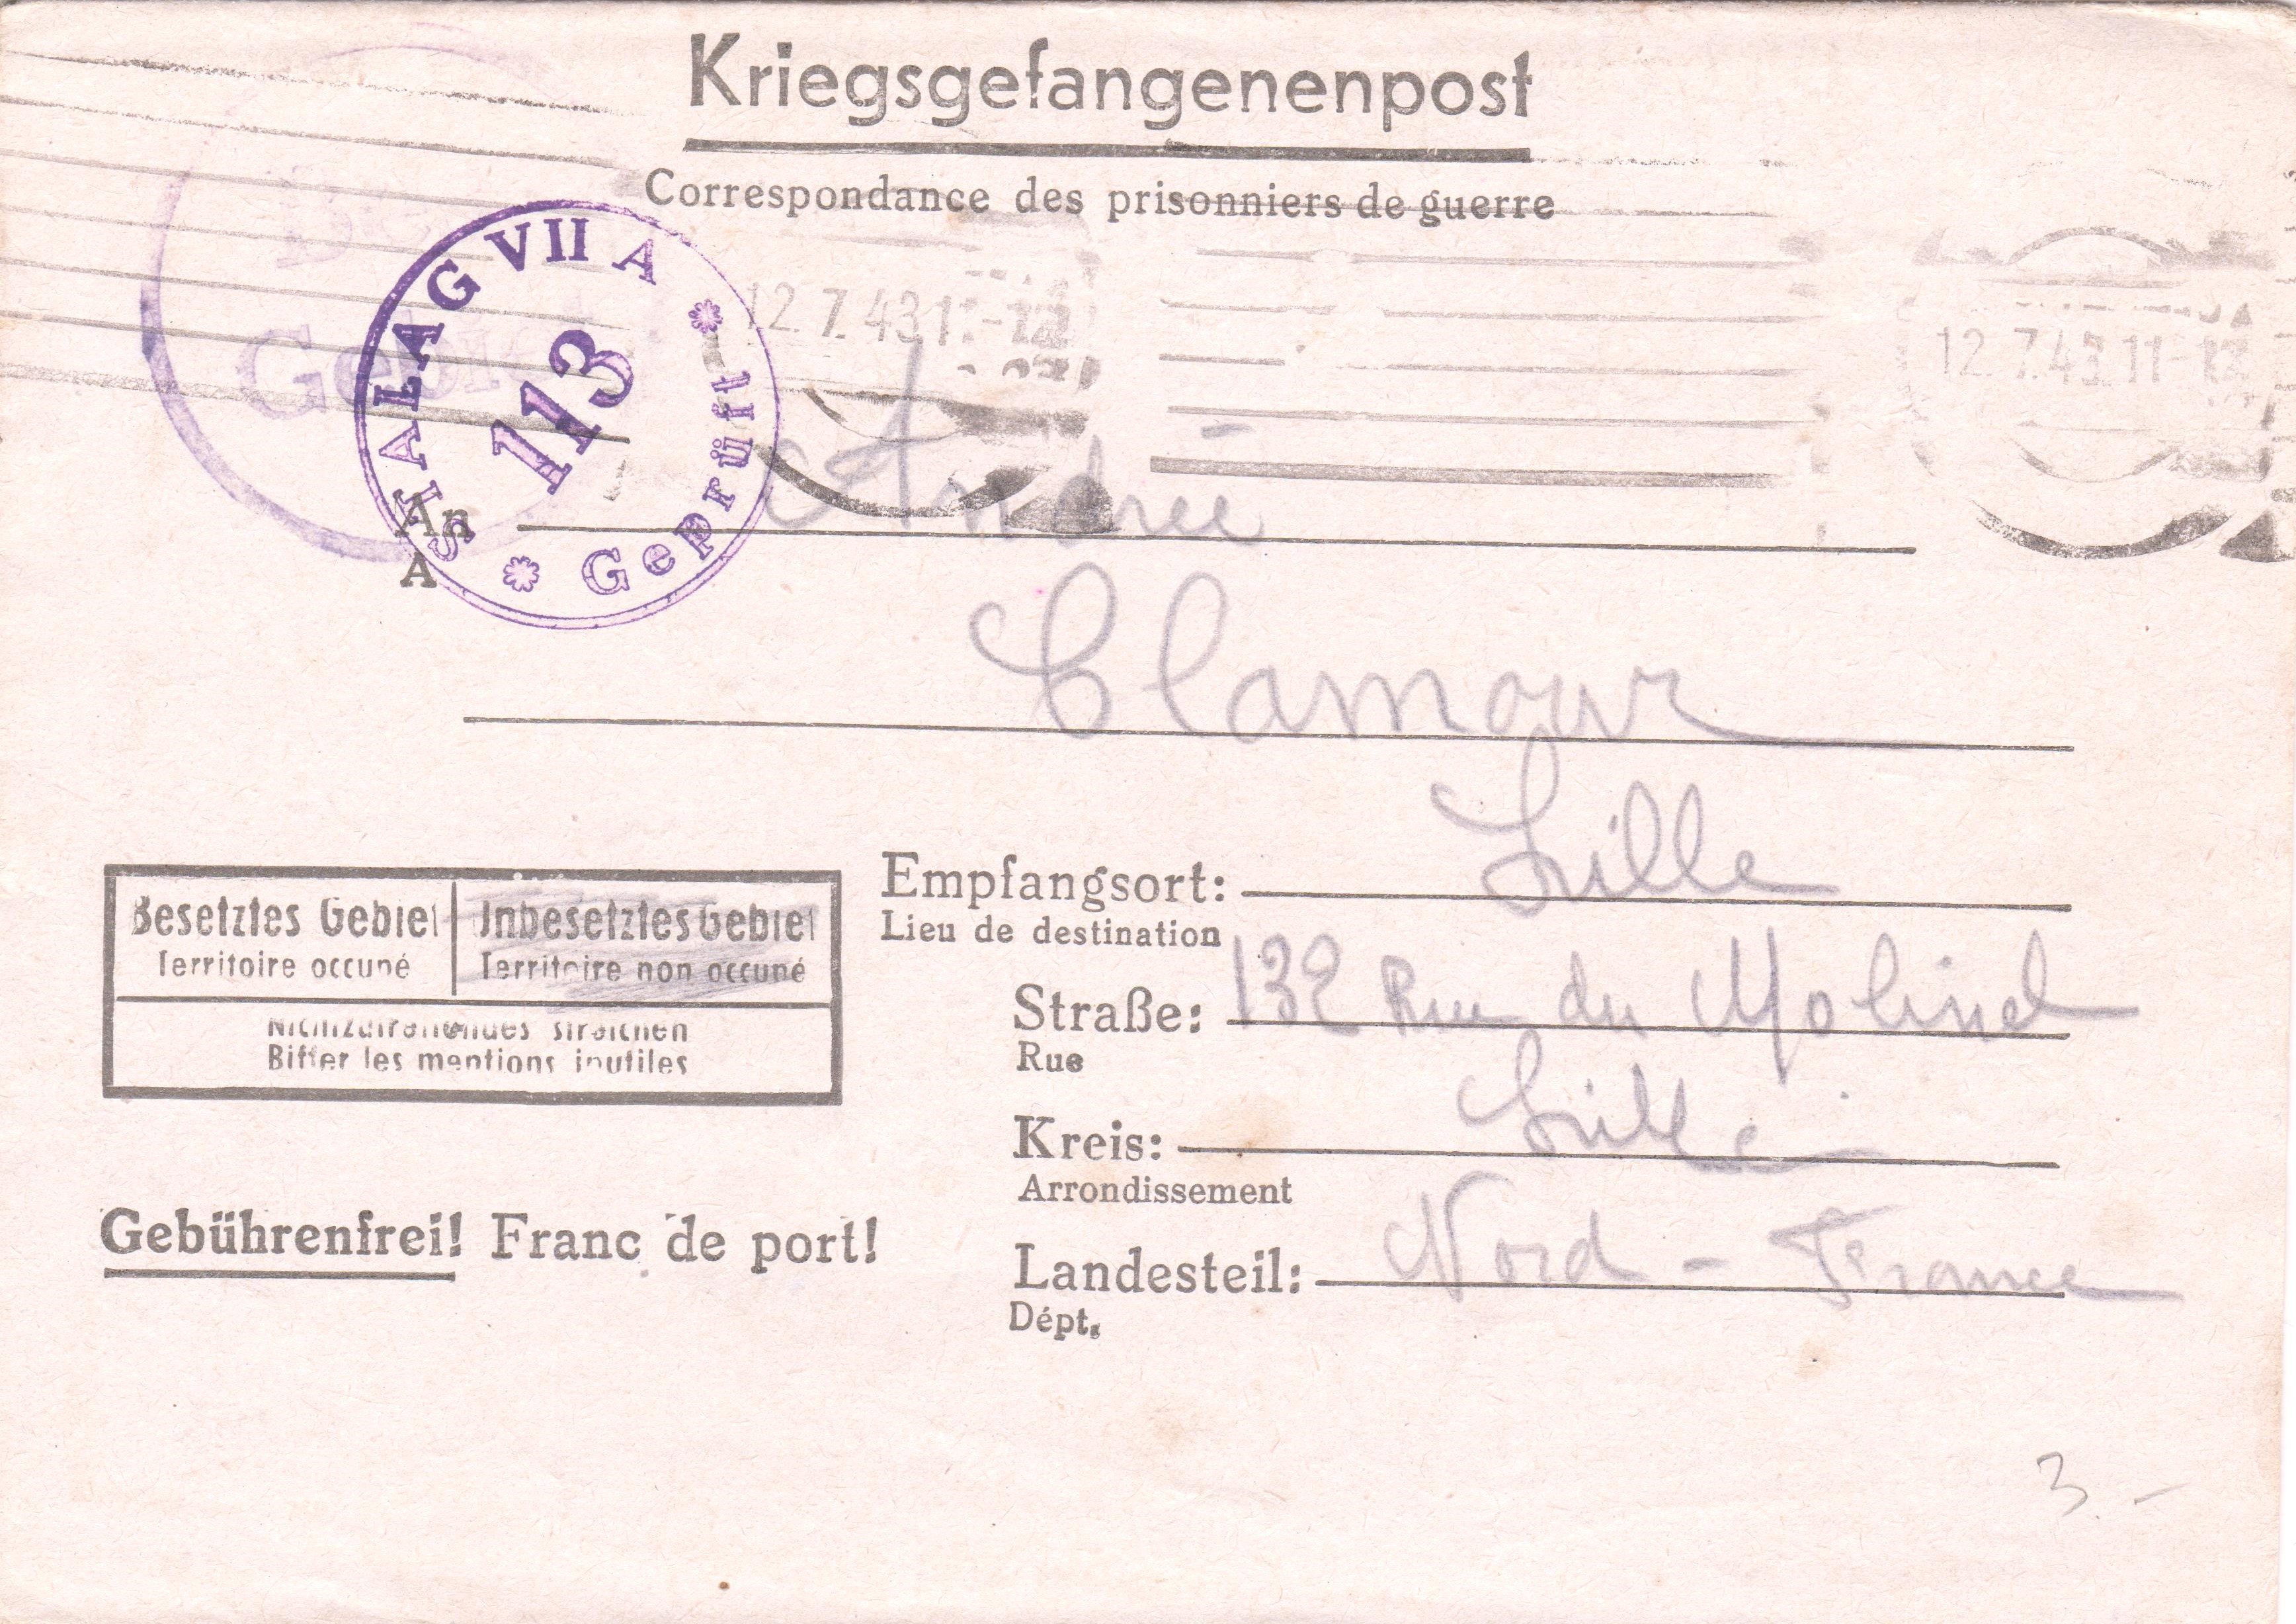 Kriegsgefangenenpost
Correspondance des prisonniers de guerre
STALAG VII A
113
Geprüft
12.7.43.11-12
12.7.43.11-12
An
A
Andrée
Clamour
Empfangsort: Lille
Lieu de destination
Besetztes Gebiet
Territoire occupé
Unbesetztes Gebiet
Territoire non occupé
Nichtzutreffendes streichen
Biffer les mentions inutiles
Straße: 132 Rue du Molinel
Rue
Kreis: Lille
Arrondissement
Gebührenfrei! Franc de port!
Landesteil: Nord - France
Dépt.
3 -